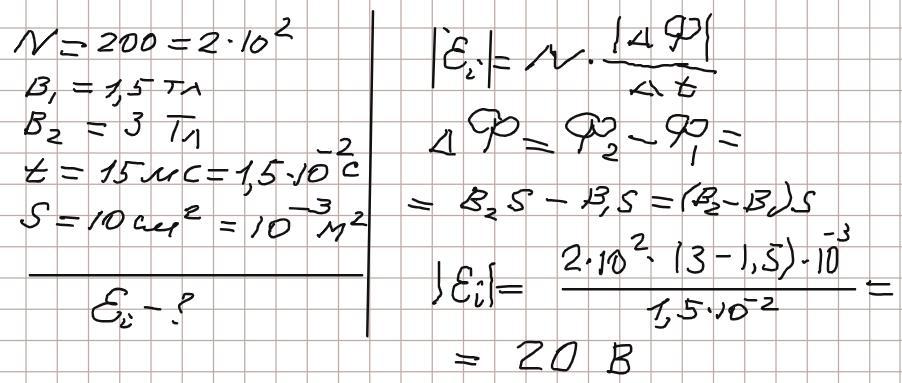 N = 200 = 2·10²
B₁ = 1,5 Тл
B₂ = 3 Тл
t = 15 мс = 1,5·10⁻² с
S = 10 см² = 10⁻³ м²
Ɛᵢ - ?
|Ɛᵢ| = N · |ΔФ| / Δt
ΔФ = Ф₂ - Ф₁ =
= B₂S - B₁S = (B₂ - B₁)S
|Ɛᵢ| = 2·10² · (3 - 1,5) · 10⁻³ / 1,5·10⁻² =
= 20 В